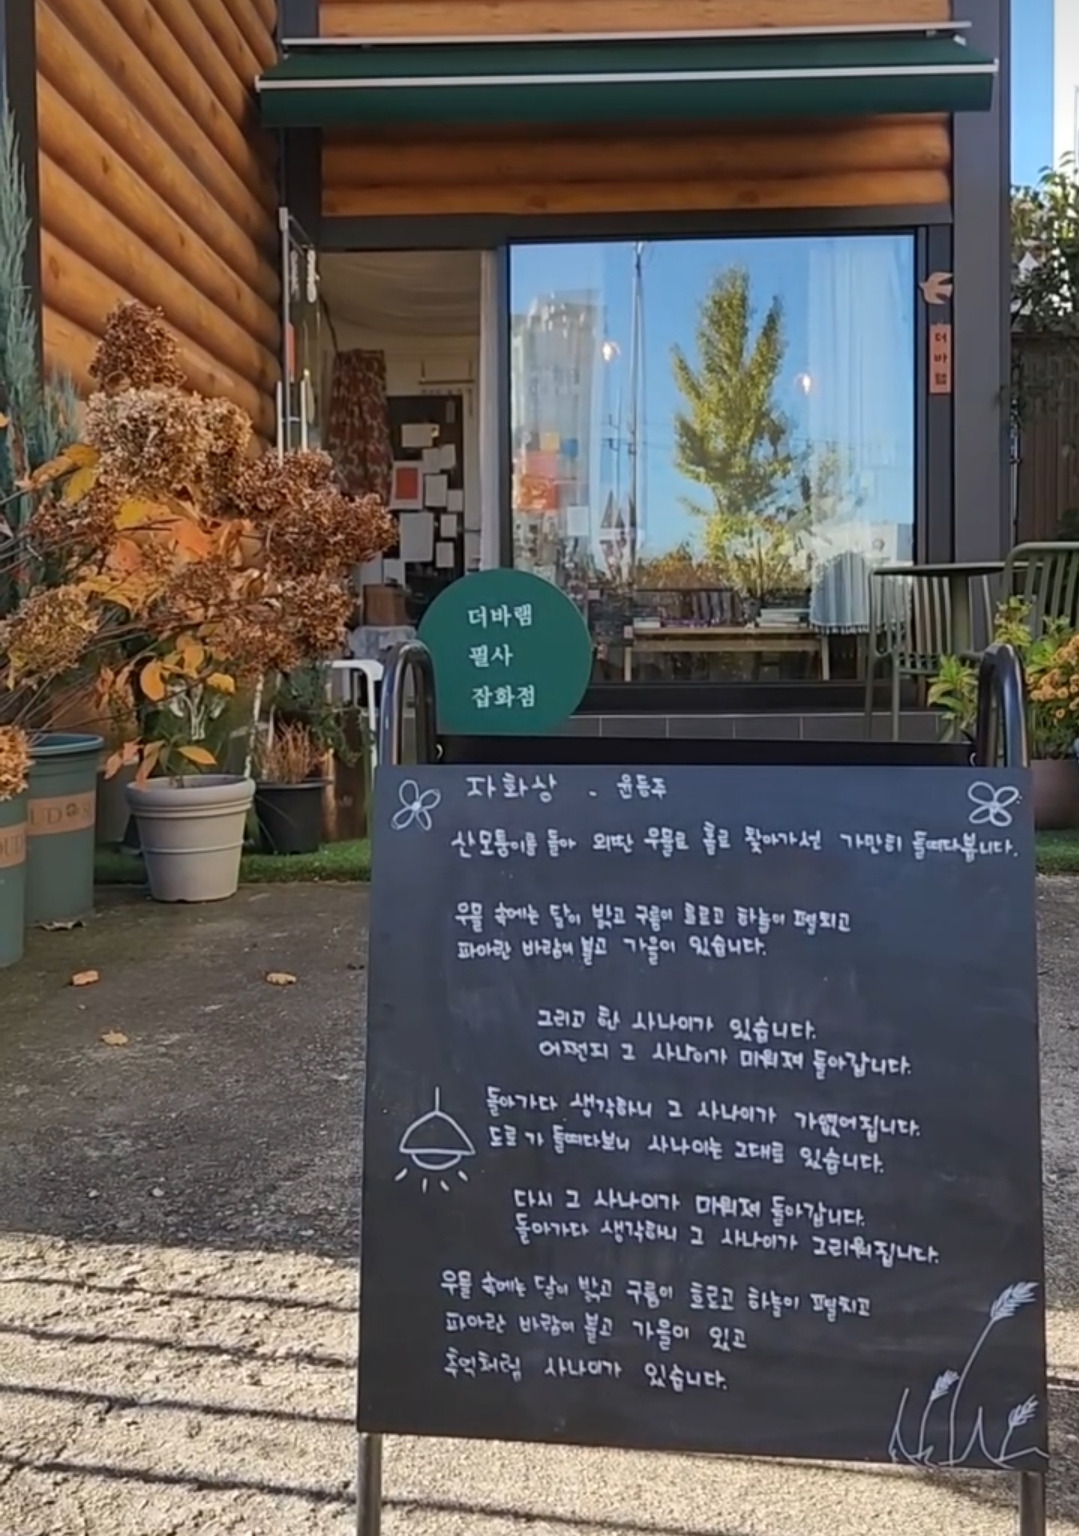 더바램
더바램
필사
잡화점
자화상 - 윤동주
산모퉁이를 돌아 외딴 우물로 홀로 찾아가선 가만히 들여다봅니다.
우물 속에는 달이 밝고 구름이 흐르고 하늘이 펼치고
파아란 바람이 불고 가을이 있습니다.
그리고 한 사나이가 있습니다.
어쩐지 그 사나이가 미워져 돌아갑니다.
돌아가다 생각하니 그 사나이가 가엾어집니다.
도로 가 들여다보니 사나이는 그대로 있습니다.
다시 그 사나이가 미워져 돌아갑니다.
돌아가다 생각하니 그 사나이가 그리워집니다.
우물 속에는 달이 밝고 구름이 흐르고 하늘이 펼치고
파아란 바람이 불고 가을이 있고
추억처럼 사나이가 있습니다.